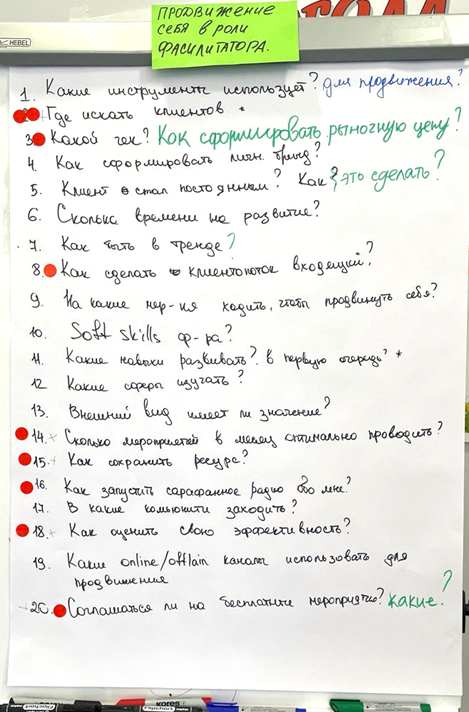 ГОДА
HEBEL
ПРОДВИЖЕНИЕ
СЕБЯ В РОЛИ
ФАСИЛИТАТОРА.
1. Какие инструменты использует? для продвижения?
2. Где искать клиентов *
3. Какой чек? Как сформировать рыночную цену?
4. Как сформировать личн. бренд?
5. Клиент стал постоянным? Как? это сделать?
6. Сколька времени на развитие?
7. Как быть в тренде?
8. Как сделать клиентопоток входящий?
9. На какие мер-ия ходить, чтобы продвинуть себя?
10. Soft skills ф-ра?
11. Какие навыки развивать? в первую очередь? *
12 Какие сферы изучать?
13. Внешний вид имеет ли значение?
14. Сколько мероприятий в месяц оптимально проводить?
15. Как сохранить ресурс?
16. Как запустить сарафанное радио обо мне?
17. В какие комьюнити заходить?
18. Как оценить свою эффективность?
19. Какие online/offlain каналы использовать для
продвижения
20. Соглашаться ли на бесплатные мероприятия? какие?
kores